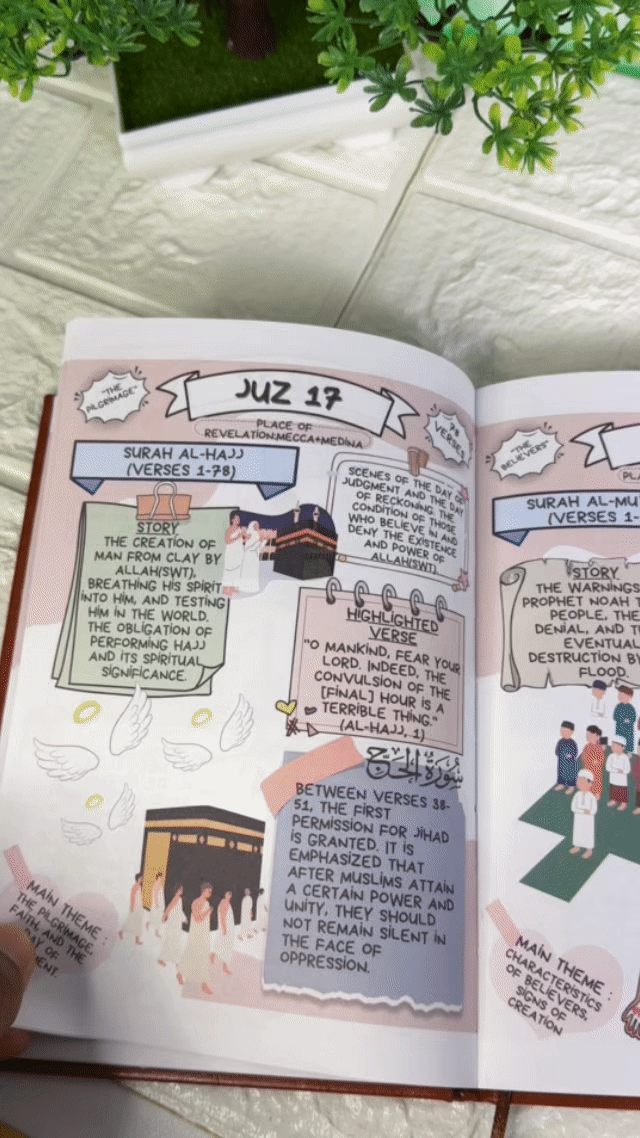 "THE
PILGRIMAGE"
JUZ 17
78
VERSES
PLACE OF
REVELATION:MECCA+MEDINA
SURAH AL-HAJJ
(VERSES 1-78)
STORY
THE CREATION OF
MAN FROM CLAY BY
ALLAH(SWT),
BREATHING HIS SPIRIT
INTO HIM, AND TESTING
HIM IN THE WORLD.
THE OBLIGATION OF
PERFORMING HAJJ
AND ITS SPIRITUAL
SIGNIFICANCE.
SCENES OF THE DAY OF
JUDGMENT AND THE DAY
OF RECKONING, THE
CONDITION OF THOSE
WHO BELIEVE IN AND
DENY THE EXISTENCE
AND POWER OF
ALLAH(SWT).
HIGHLIGHTED
VERSE
"O MANKIND, FEAR YOUR
LORD. INDEED, THE
CONVULSION OF THE
[FINAL] HOUR IS A
TERRIBLE THING."
(AL-HAJJ, 1)
سُورَةُ الحَجّ
BETWEEN VERSES 38-
51, THE FIRST
PERMISSION FOR JIHAD
IS GRANTED. IT IS
EMPHASIZED THAT
AFTER MUSLIMS ATTAIN
A CERTAIN POWER AND
UNITY, THEY SHOULD
NOT REMAIN SILENT IN
THE FACE OF
OPPRESSION.
MAIN THEME :
THE PILGRIMAGE,
FAITH, AND THE
OF
"THE
BELIEVERS"
SURAH AL-MU
(VERSES 1-
STORY
THE WARNINGS
PROPHET NOAH T
PEOPLE, THE
DENIAL, AND T
EVENTUAL
DESTRUCTION B
FLOOD.
MAIN THEME :
CHARACTERISTICS
OF BELIEVERS,
SIGNS OF
CREATION